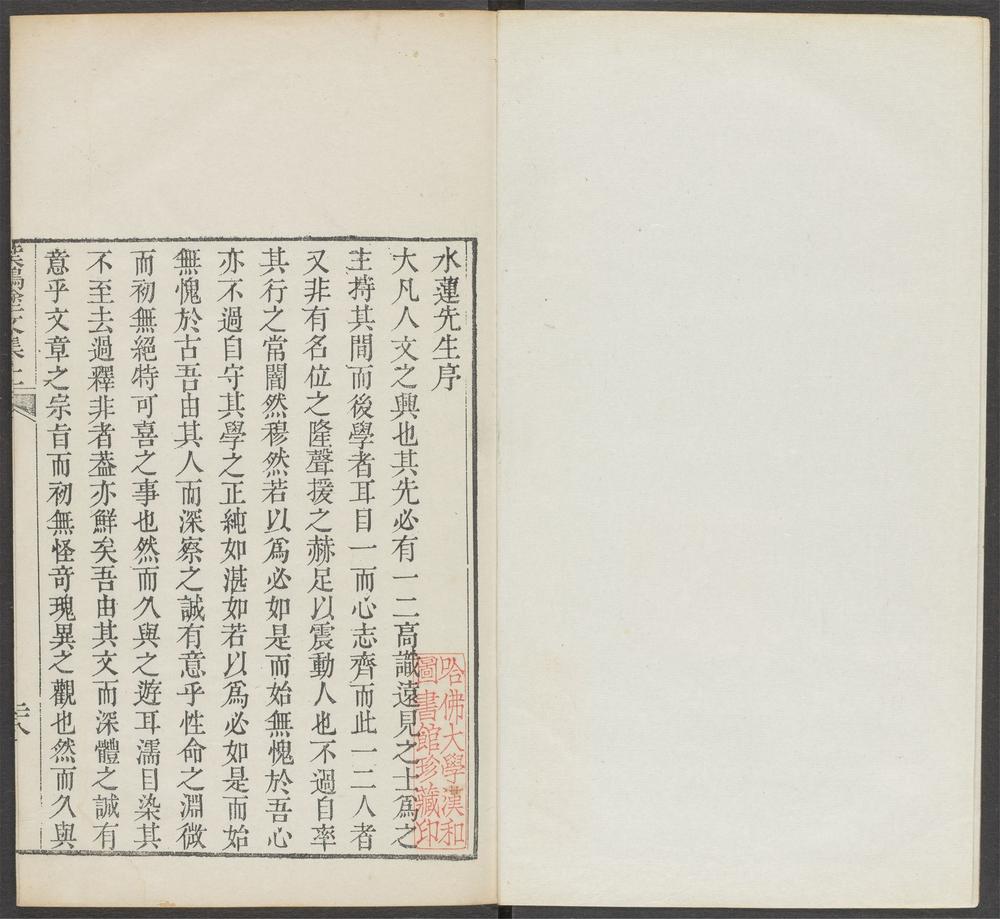 水蓮先生序
大凡人文之興也其先必有一二高識遠見之士爲之
主持其間而後學者耳目一而心志齊而此一二人者
又非有名位之隆聲援之赫足以震動人也不過自率
其行之常闇然穆然若以爲必如是而始無愧於吾心
亦不過自守其學之正純如湛如若以爲必如是而始
無愧於古吾由其人而深察之誠有意乎性命之淵微
而初無絕特可喜之事也然而久與之遊耳濡目染其
不至去過釋非者葢亦鮮矣吾由其文而深體之誠有
意乎文章之宗旨而初無怪奇瑰異之觀也然而久與
文集 二
哈佛大學漢和
圖書館珍藏印